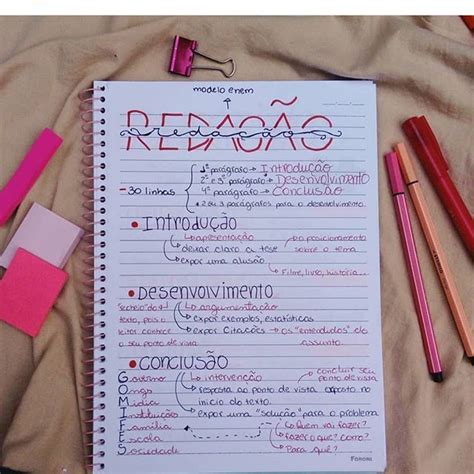 modelo enem
REDAÇÃO
redação
__/__/__
- 30 linhas
1º parágrafo → Introdução
2º e 3º parágrafo → Desenvolvimento
4º parágrafo → Conclusão
* 2 ou 3 parágrafos para o desenvolvimento.
• Introdução
↳ apresentação
deixar claro a tese
↳ o posicionamento sobre o tema
expor uma alusão
↳ Filme, livro, história...
• Desenvolvimento
↳ argumentação
expor exemplos, estatísticas
expor citações → os "entendidos" do assunto.
texto, pois o
leitor conhece
o seu ponto de vista
• Conclusão
↳ intervenção
concluir seu ponto de vista
resposta ao ponto de vista exposto no início do texto.
expor uma "solução" para o problema
↳ Quem vai fazer?
↳ Fazer o que? Como?
↳ Para que?
Governo
Ongs
Mídia
Instituições
Família
Escola
Sociedade
Foroni